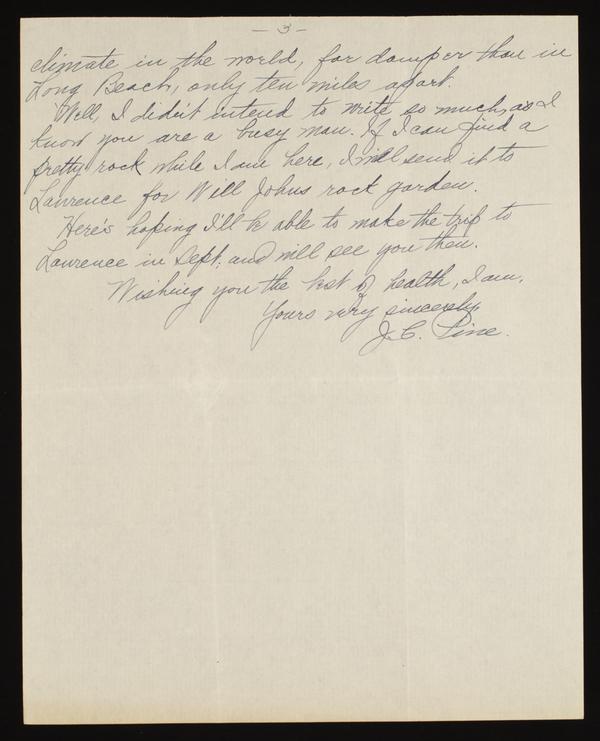 - 3 -
climate in the world, far damper than in
Long Beach, only ten miles apart.
Well, I didn't intend to write so much, as I
know you are a busy man. If I can find a
pretty rock while I am here, I will send it to
Lawrence for Will Johns rock garden.
Here's hoping I'll be able to make the trip to
Lawrence in Sept. and will see you then.
Wishing you the best of health, I am,
Yours very sincerely,
J. C. Line.